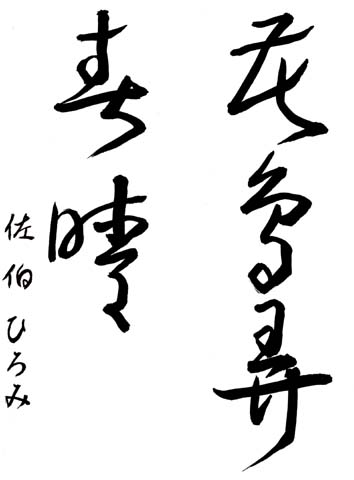 花鳥弄
春晴
佐伯ひろみ